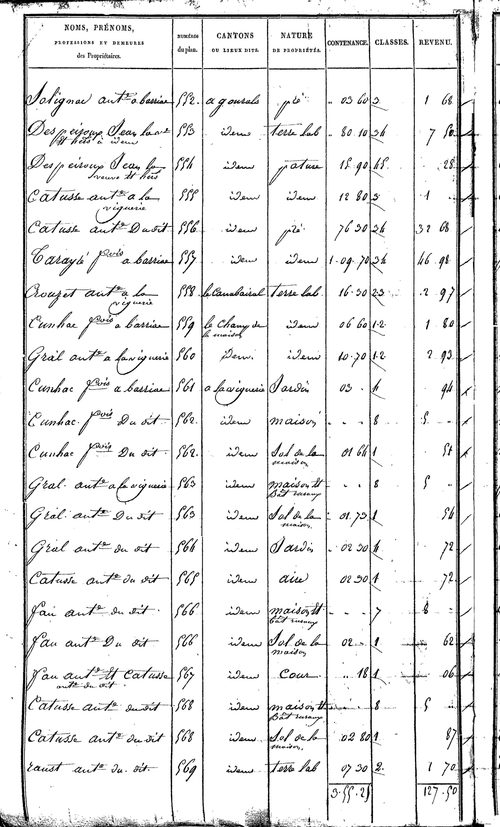 NOMS, PRÉNOMS, PROFESSIONS ET DEMEURES des Propriétaires. | NUMÉROS du plan. | CANTONS OU LIEUX DITS. | NATURE DE PROPRIÉTÉS. | CONTENANCE. | CLASSES. | REVENU.
Solignac ant.ne a barriac 552. a gourals pré .. 03 60 3 1 68
Despeiroux Jean la v.ve et hérs à idem 553 idem terre lab .. 80 10 34 7 50
Despeiroux Jean la veuve et hérs 554 idem pature 15.90 45. .. 28
Catusse ant.ne a la viguerie 555 idem idem 12 80 3 1 ..
Catusse ant.ne Du dit 556 idem pré 76 30 34 32 68
f.cois a barriac 557 idem idem 1.09.70 34 46.98
Crouzet ant.ne a la viguerie 558 terre lab 16.30 23 2 97
Cunhac f.cois a barriac 559 le Champ de la maison idem 06 60 1.2 1 80
Gral ant.ne a la viguerie 560 idem idem 10.70 1.2 2 93
Cunhac f.cois a barriac 561 a la viguerie Jardin 03 . 4 94
Cunhac f.cois Du dit 562. idem maison . . . 8 5 ..
Cunhac f.cois Du dit 562. idem Sol de la maison 01 64 1 51
Gral ant.ne a la viguerie 563 idem maison et Bât ruraux .. .. 8 5 ..
Gral. ant.ne Du dit 563 idem Sol de la maison .. 01.73 1 54
Gral ant.ne du dit 564 idem Jardin .. 02 30 4 72
Catusse ant.ne du dit 565 idem aire 02 30 1 72
fau ant.ne du dit 566 idem maison et bât ruraux . . . 7 8 ..
fau ant.ne Du dit 566 idem Sol de la maison 02 .. 1 62
fau ant.ne et Catusse ant.ne du dit 567 idem cour .. 18 1 06
Catusse ant.ne du dit 568 idem maison et Bât ruraux .. 8 5 ..
Catusse ant.ne du dit 568 idem Sol de la maison. 02 80 1 87
ant.ne du. dit. 569 idem terre lab 07 30 2. 1 70
3.55.21 127.50